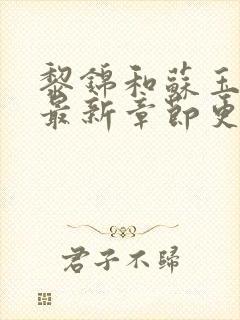 黎錦和蘇玉
最新章節更
君子不歸